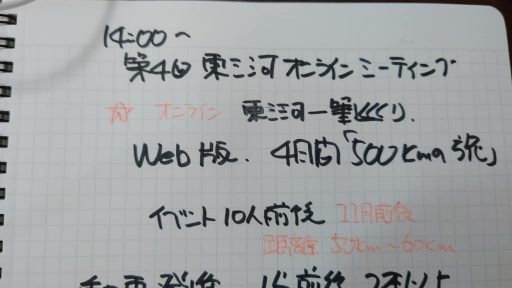 14:00～
第4回 東三河オンラインミーティング
☆ オンライン 東三河一筆
Web版. 4月向「500km
イベント10人前後 11月前後
距離 50km～60km
前後